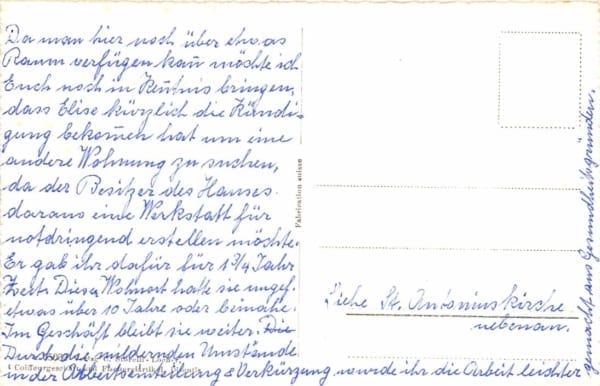 Da man hier noch über etwas
Raum verfügen kan̄ möchte ich
Euch noch in Ken̄tnis bringen,
dass Elise kürzlich die Kündi-
gung bekom̄en hat um eine
andere Wohnung zu suchen,
da der Besitzer des Hauses
daraus eine Werkstatt für
notdringend erstellen möchte.
Er gab ihr dafür für 1 3/4 Jahr
Zeit. Dieser Wohnort hatte sie ungef.
etwas über 10 Jahre oder beinahe.
Im Geschäft bleibt sie weiter. Die
Durch die mildernden Umstände
in der Arbeitseinteilung & Verkürzung wurde ihr die Arbeit leichter
gemacht aus Gesundheitsgründen.
Fabrication suisse
Siehe St. Antoniuskirche
nebenan.